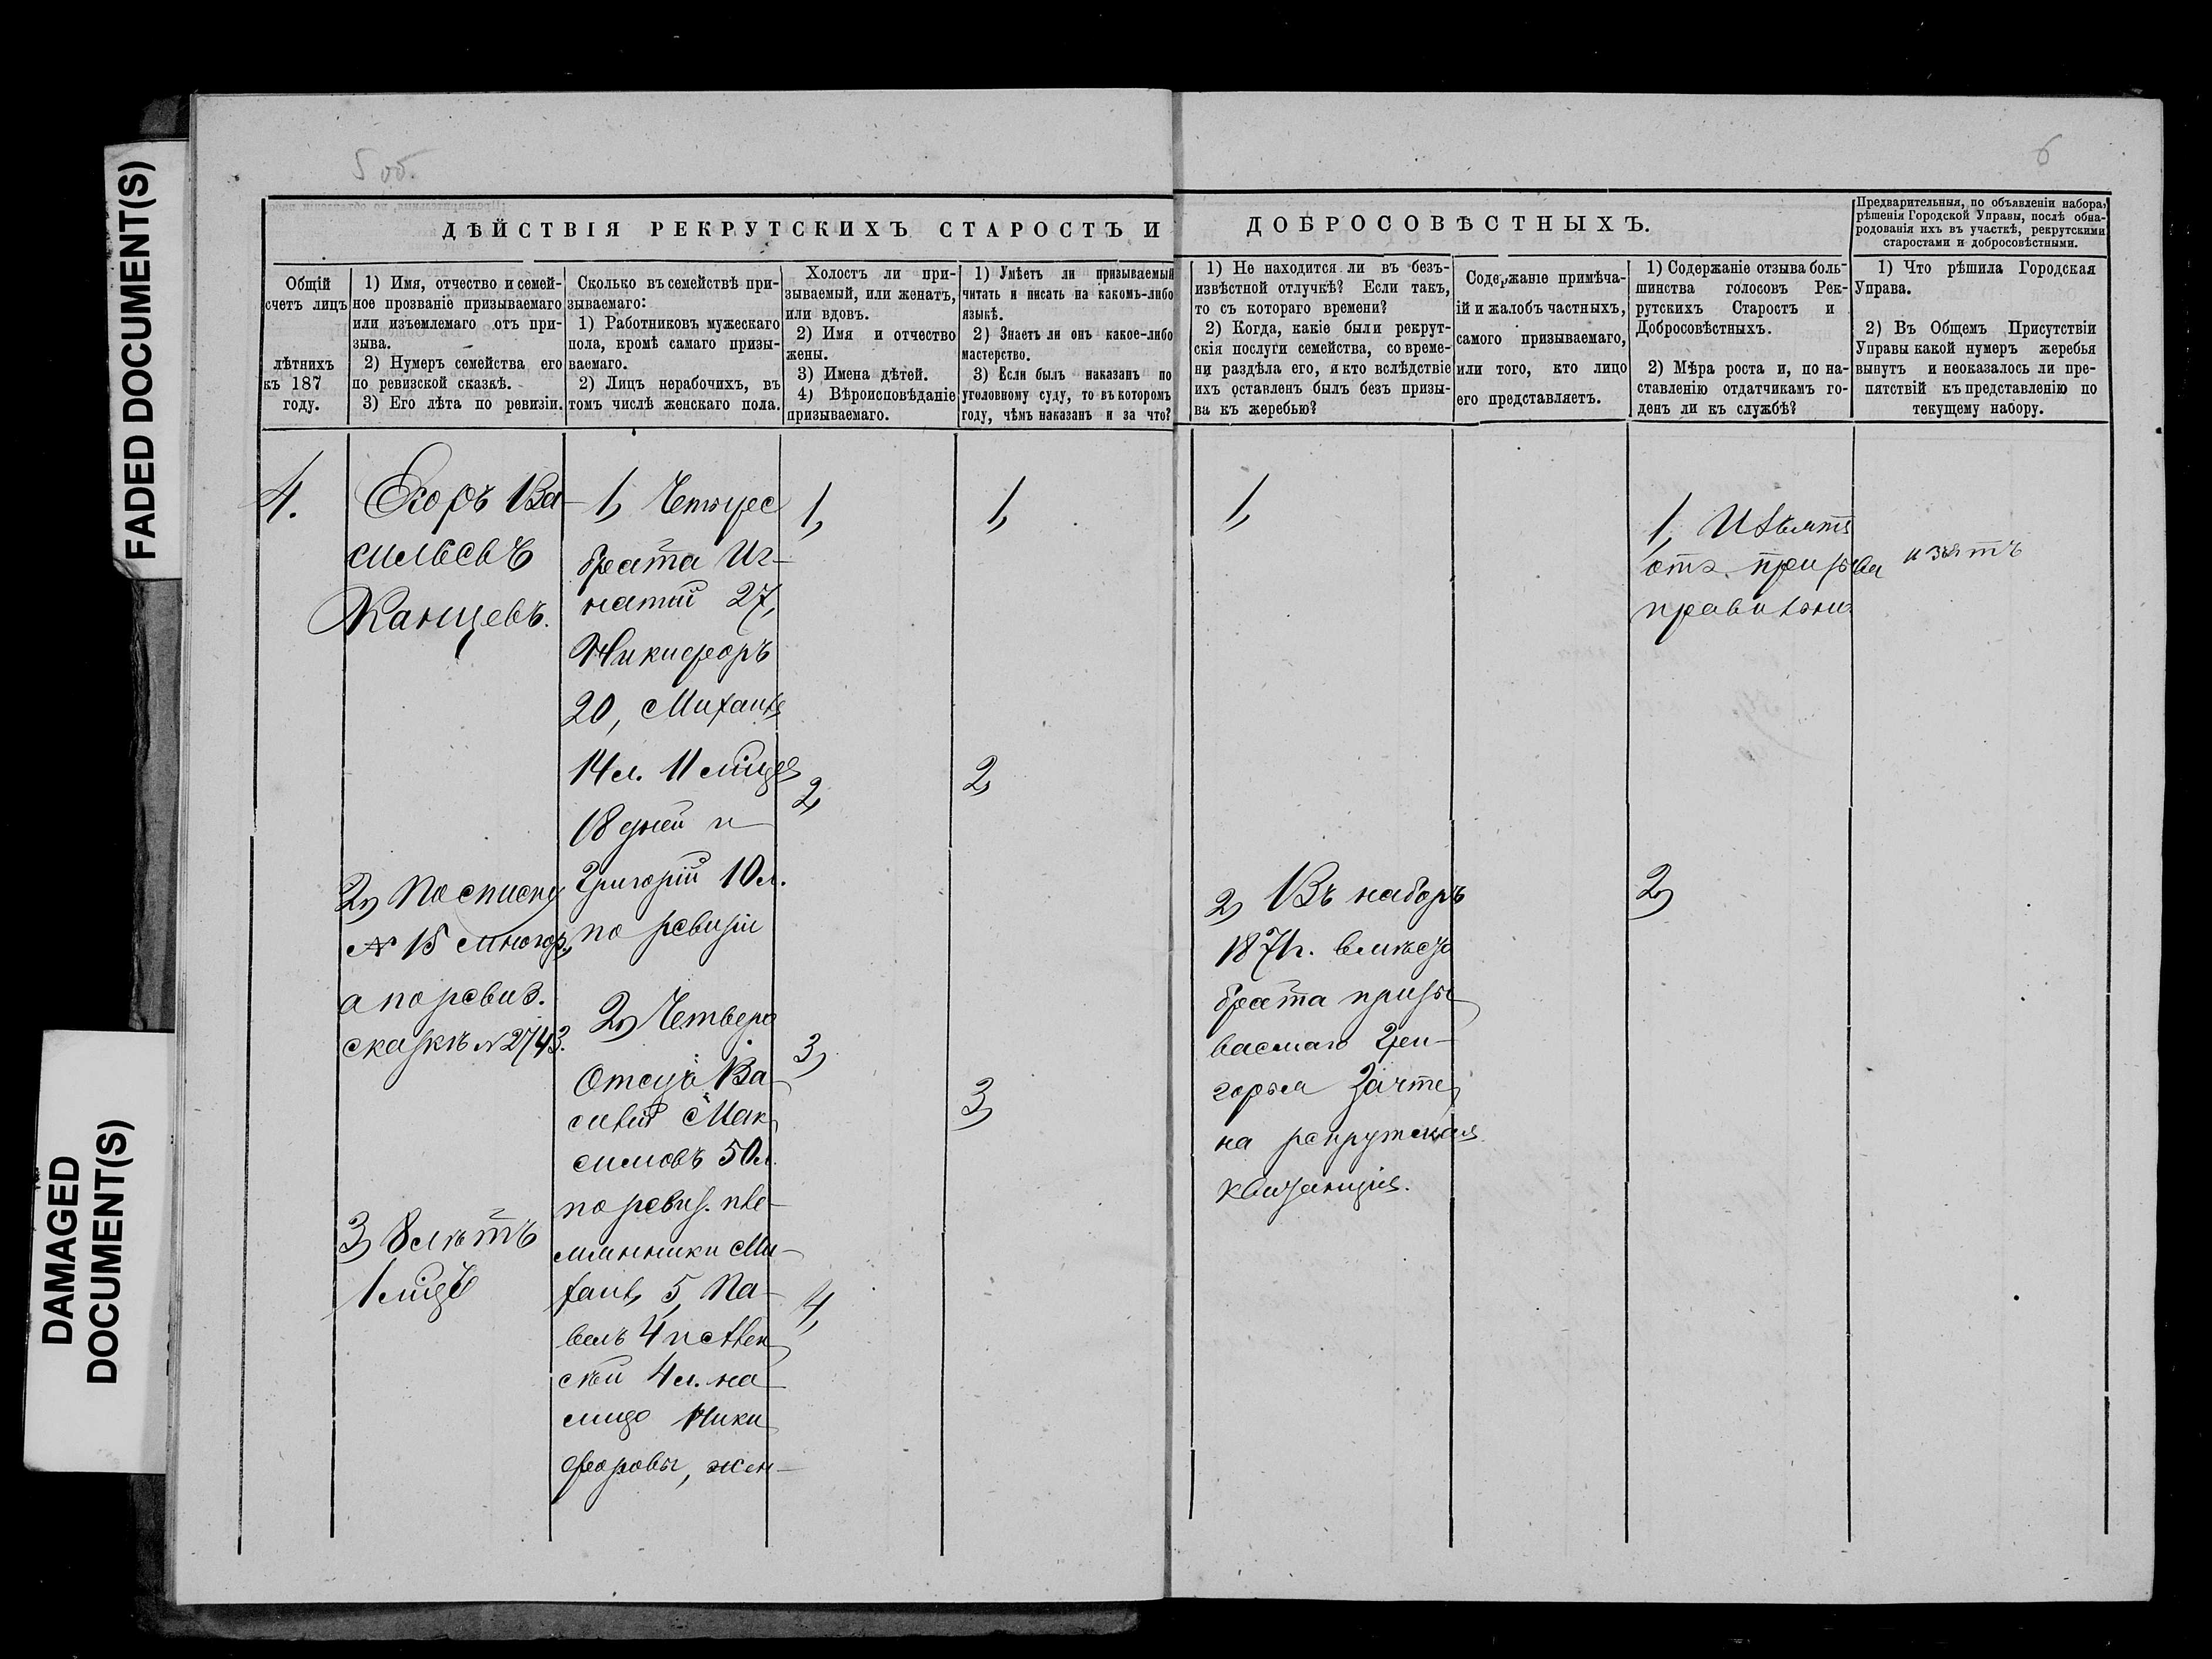 FADED DOCUMENT(S)
DAMAGED
DOCUMENT(S)
5 об.
6
ДѢЙСТВІЯ РЕКРУТСКИХЪ СТАРОСТЪ И ДОБРОСОВѢСТНЫХЪ.
Предварительныя, по объявленіи набора,
рѣшенія Городской Управы, послѣ обна-
родованія ихъ въ участкѣ, рекрутскими
старостами и добросовѣстными.
Общій
счетъ лицъ
лѣтнихъ
къ 187
году.
1) Имя, отчество и семей-
ное прозваніе призываемаго
или изъемлемаго отъ при-
зыва.
2) Нумеръ семейства его
по ревизской сказкѣ.
3) Его лѣта по ревизіи.
Сколько въ семействѣ при-
зываемаго:
1) Работниковъ мужескаго
пола, кромѣ самаго призы-
ваемаго.
2) Лицъ нерабочихъ, въ
томъ числѣ женскаго пола.
Холостъ ли при-
зываемый, или женатъ,
или вдовъ.
2) Имя и отчество
жены.
3) Имена дѣтей.
4) Вѣроисповѣданіе
призываемаго.
1) Умѣетъ ли призываемый
читать и писать на какомъ-либо
языкѣ.
2) Знаетъ ли онъ какое-либо
мастерство.
3) Если былъ наказанъ по
уголовному суду, то въ которомъ
году, чѣмъ наказанъ и за что?
1) Не находится ли въ безъ-
извѣстной отлучкѣ? Если такъ,
то съ котораго времени?
2) Когда, какіе были рекрут-
скія послуги семейства, со време-
ни раздѣла его, и кто вслѣдствіе
ихъ оставленъ былъ безъ призы-
ва къ жеребью?
Содержаніе примѣча-
ій и жалобъ частныхъ,
самого призываемаго,
или того, кто лицо
его представляетъ.
1) Содержаніе отзыва боль-
шинства голосовъ Рек-
рутскихъ Старостъ и
Добросовѣстныхъ.
2) Мѣра роста и, по на-
ставленію отдатчикамъ го-
денъ ли къ службѣ?
1) Что рѣшила Городская
Управа.
2) Въ Общемъ Присутствіи
Управы какой нумеръ жеребья
вынутъ и неоказалось ли пре-
пятствій къ представленію по
текущему набору.
4.
Егоръ Ва-
сильевъ
Канцевъ.
2) По списку
№ 15 многор,
а по ревиз.
сказкѣ № 2743.
3) 8 лѣтъ
1 мцъ
1) Четыре
брата Иг-
натій 27,
Никифоръ
20, Михаилъ
14 л. 11 мцевъ
18 дней и
Григорій 10 л.
по ревизіи
2) Четверо
Отецъ Ва-
силій Мак-
симовъ 50 л.
по ревиз. пле-
мянники Ми-
хаилъ 5, Па-
велъ 4 и Алек
сѣй 4 л. на
лицо Ники
форовы, жен-
1,
2,
3,
4,
1,
2,
3,
1,
2) Въ наборъ
1871 г. вмѣсто
брата призы
ваемаго Гри-
горья зачте-
на рекрутская
квитанція.
1, Изъятъ
отъ призыва
правильно
2)
изъятъ